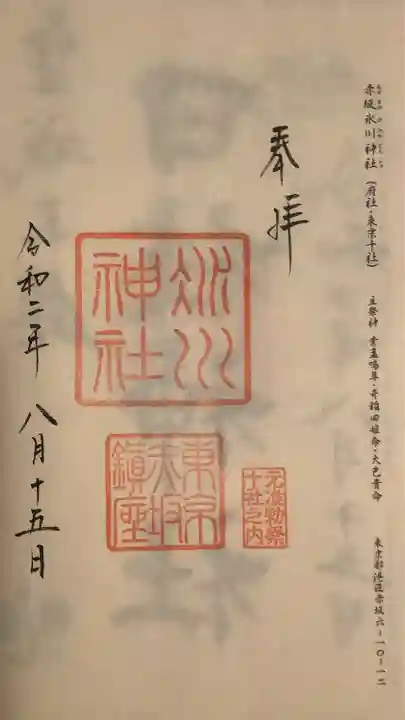 赤坂氷川神社（府社・東京十社）　主祭神　素盞嗚尊・奇稲田姫命・大己貴命　東京都港区赤坂六ー一〇ー一二
奉拝
氷川
神社
元准勅祭
十社之内
東京
赤坂
鎮座
令和二年 八月十五日